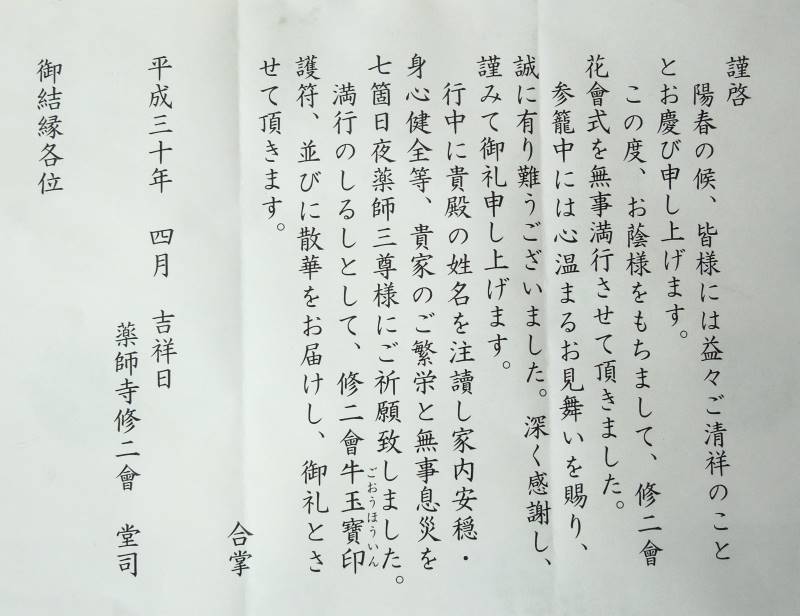 謹啓
陽春の候、皆様には益々ご清祥のこと
とお慶び申し上げます。
この度、お蔭様をもちまして、修二會
花會式を無事満行させて頂きました。
参籠中には心温まるお見舞いを賜り、
誠に有り難うございました。深く感謝し、
謹みて御礼申し上げます。
行中に貴殿の姓名を注讀し家内安穏・
身心健全等、貴家のご繁栄と無事息災を
七箇日夜薬師三尊様にご祈願致しました。
満行のしるしとして、修二會牛玉寶印
ごおうほういん
護符、並びに散華をお届けし、御礼とさ
せて頂きます。
合掌
平成三十年 四月 吉祥日
薬師寺修二會 堂司
御結縁各位